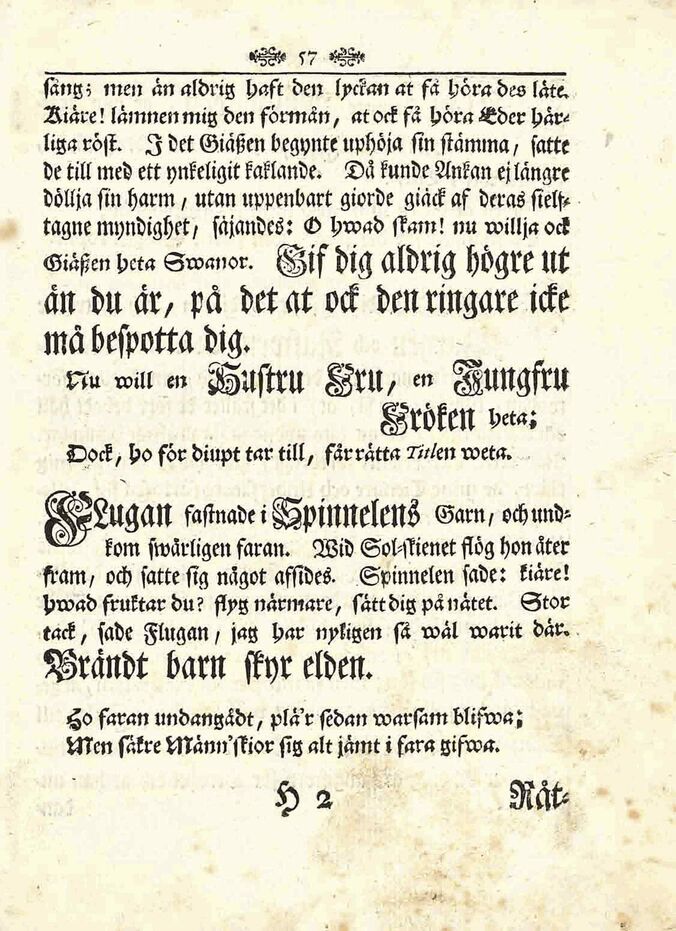 57
sång; men än aldrig haft den lyckan at få höra des läte.
Kiäre! lämnen mig den förmån, at ock få höra Eder här-
liga röst. I det Giäßen begynte uphöja sin stämma, satte
de till med ett ynkeligit kaklande. Då kunde Ankan ej längre
döllja sin harm, utan uppenbart giorde giäck af deras sielf-
tagne myndighet, säjandes: O hwad skam! nu willja ock
Giäßen heta Swanor. Gif dig aldrig högre ut
än du är, på det at ock den ringare icke
må bespotta dig.
Nu will en Hustru Fru, en Jungfru
Fröken heta;
Dock, ho för diupt tar till, får rätta Titlen weta.
FLugan fastnade i Spinnelens Garn, och und-
kom swårligen faran. Wid Sol-skienet flög hon åter
fram, och satte sig något afsides. Spinnelen sade: kiäre!
hwad fruktar du? flyg närmare, sätt dig på nätet. Stor
tack, sade Flugan, jag har nyligen så wäl warit där.
Brändt barn skyr elden.
Ho faran undangådt, plä'r sedan warsam blifwa;
Men säkre Männ'skior sig alt jämt i fara gifwa.
H 2 Råt-